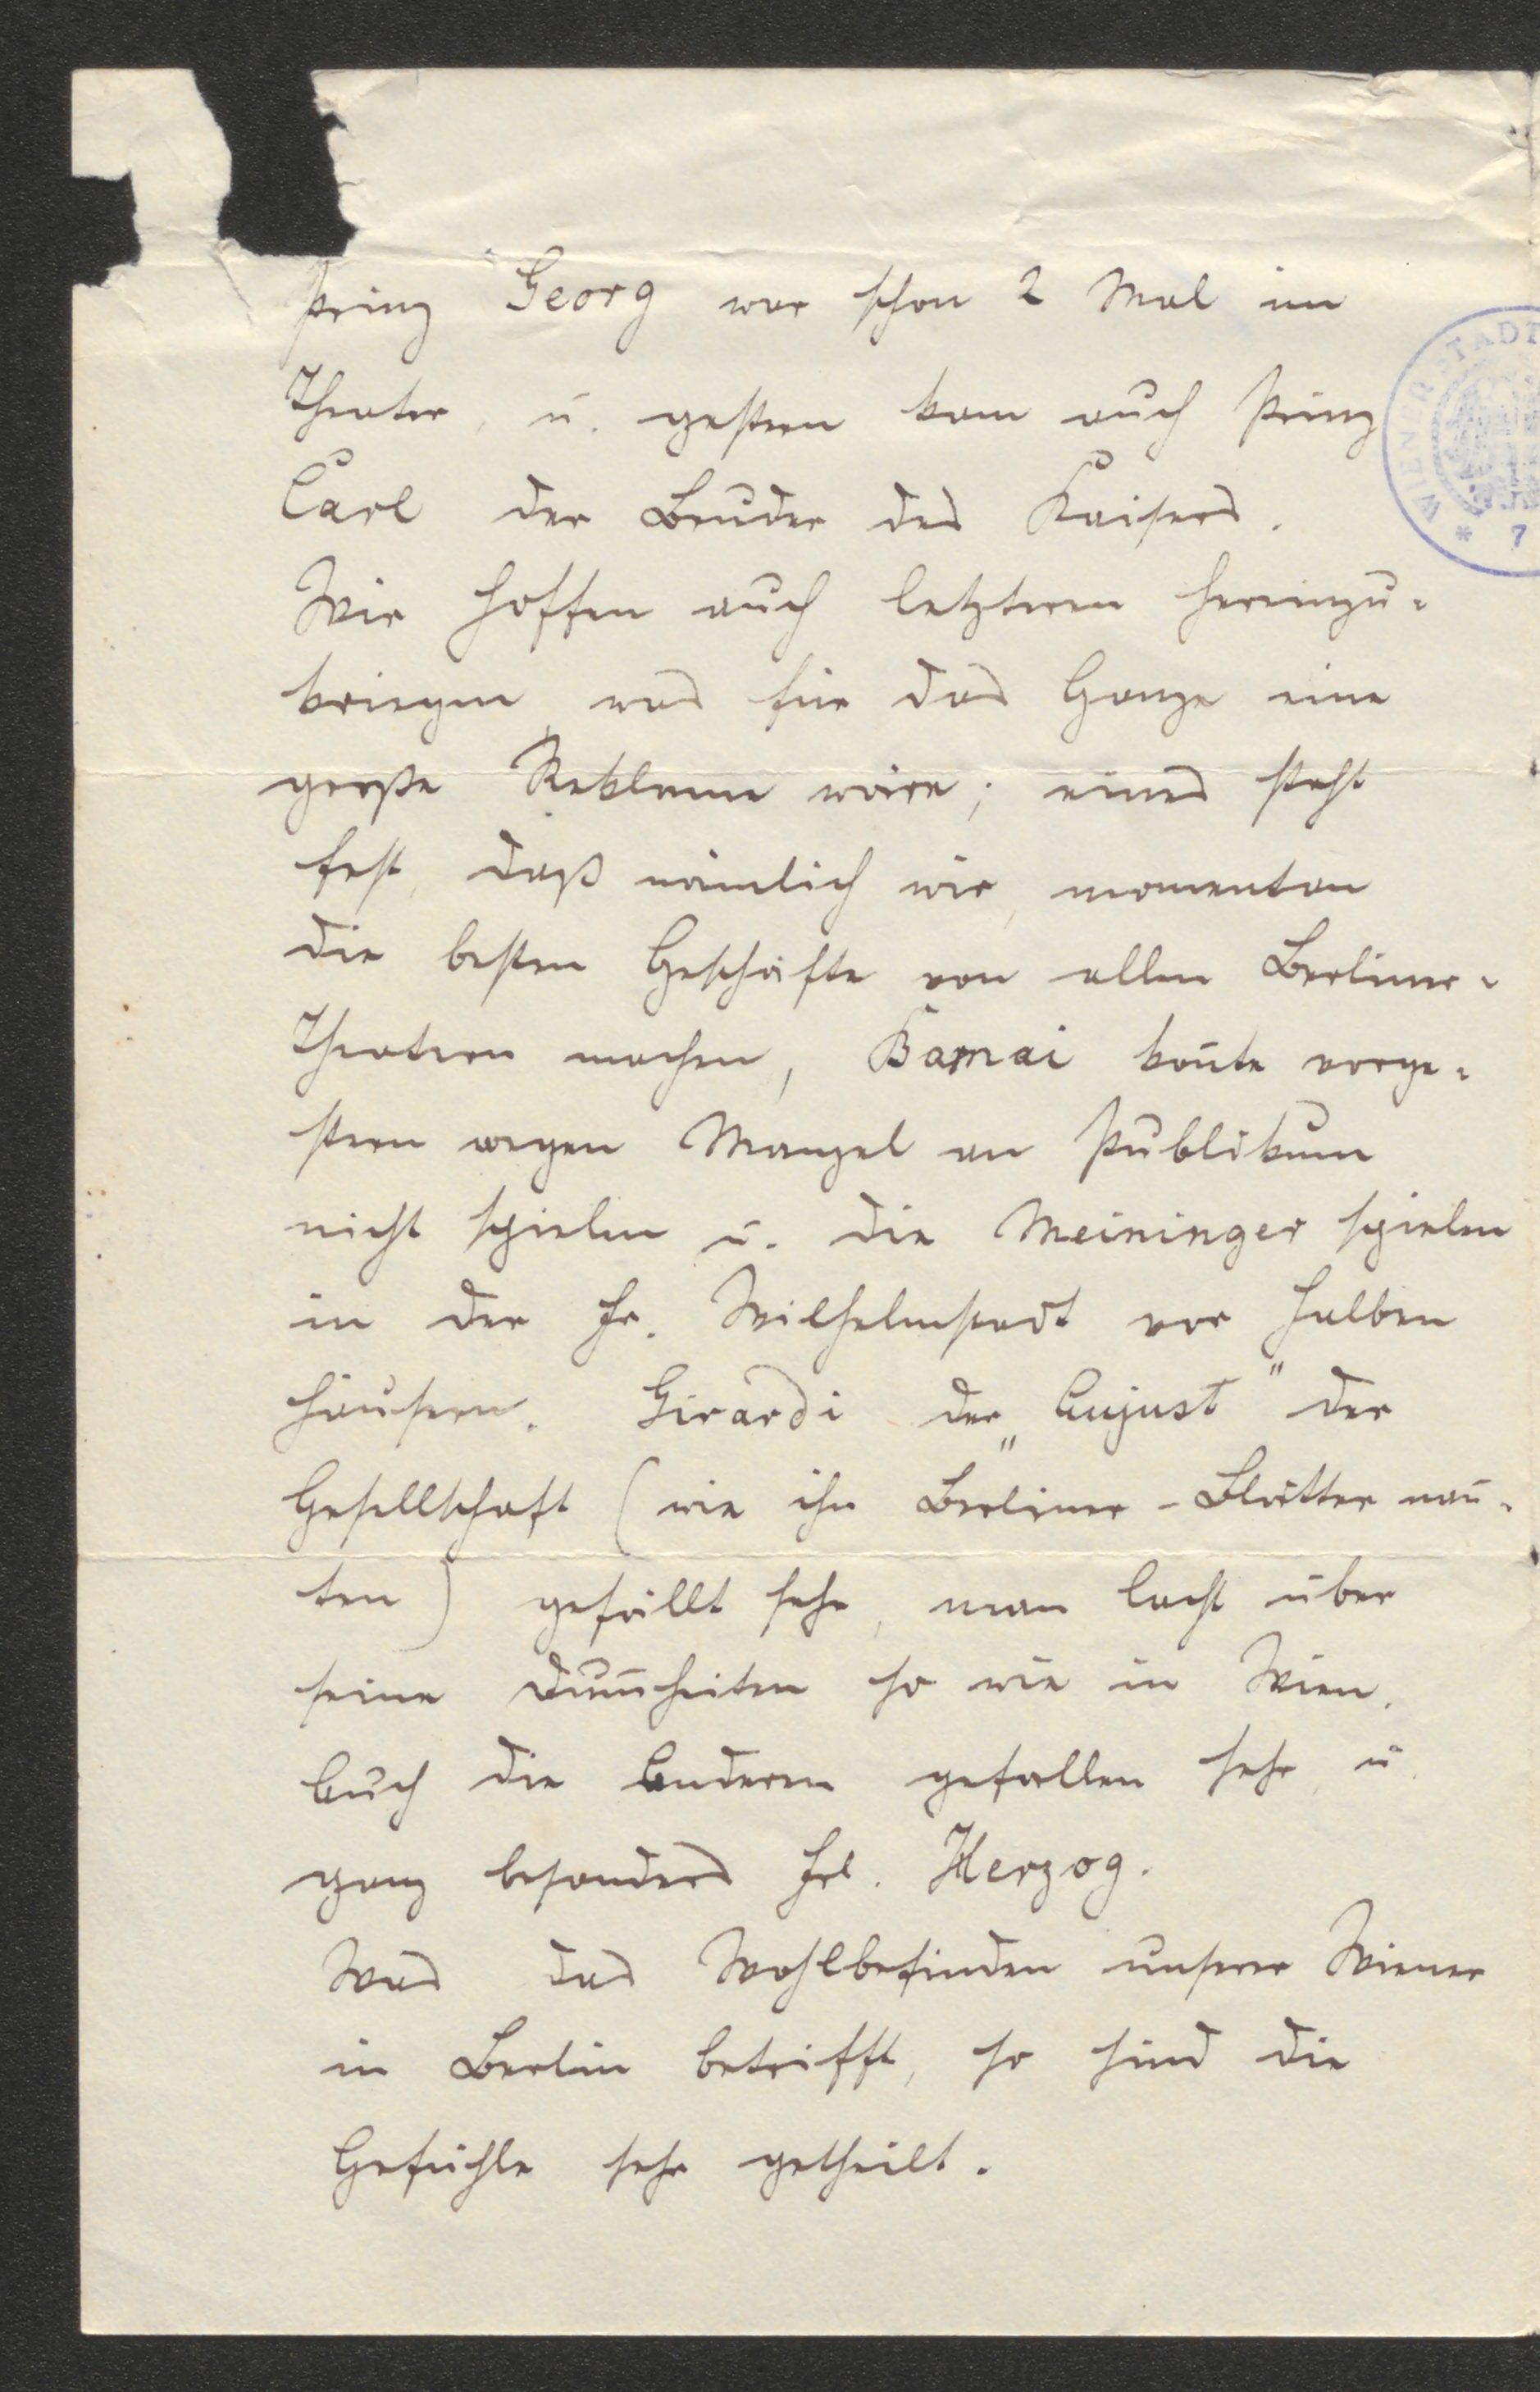 Prinz Georg war schon 2 Mal im
Theater, u. gestern kam auch Prinz
Carl der Bruder des Kaisers.
Wir hoffen auch letzteren hereinzu-
kriegen, was für das Ganze eine
große Reklame wäre; eines steht
fest, daß nämlich wir, momentan
die besten Geschäfte von allen Berliner-
Theatern machen, Barnai kon̄te vorge-
stern wegen Mangel an Publikum
nicht spielen u. die Meininger spielen
in der Fr. Wilhelmstadt vor halben
Häusern. Girardi der „August" der
Gesellschaft (wie ihn Berliner-Blätter nan̄-
ten) gefällt sehr, man lacht über
seine Dum̄heiten so wie in Wien.
Auch die Anderen gefallen sehr, u.
ganz besonders Frl. Herzog.
Was das Wohlbefinden unserer Wiener
in Berlin betrifft, so sind die
Gefühle sehr getheilt.
WIENER STADT
* 7